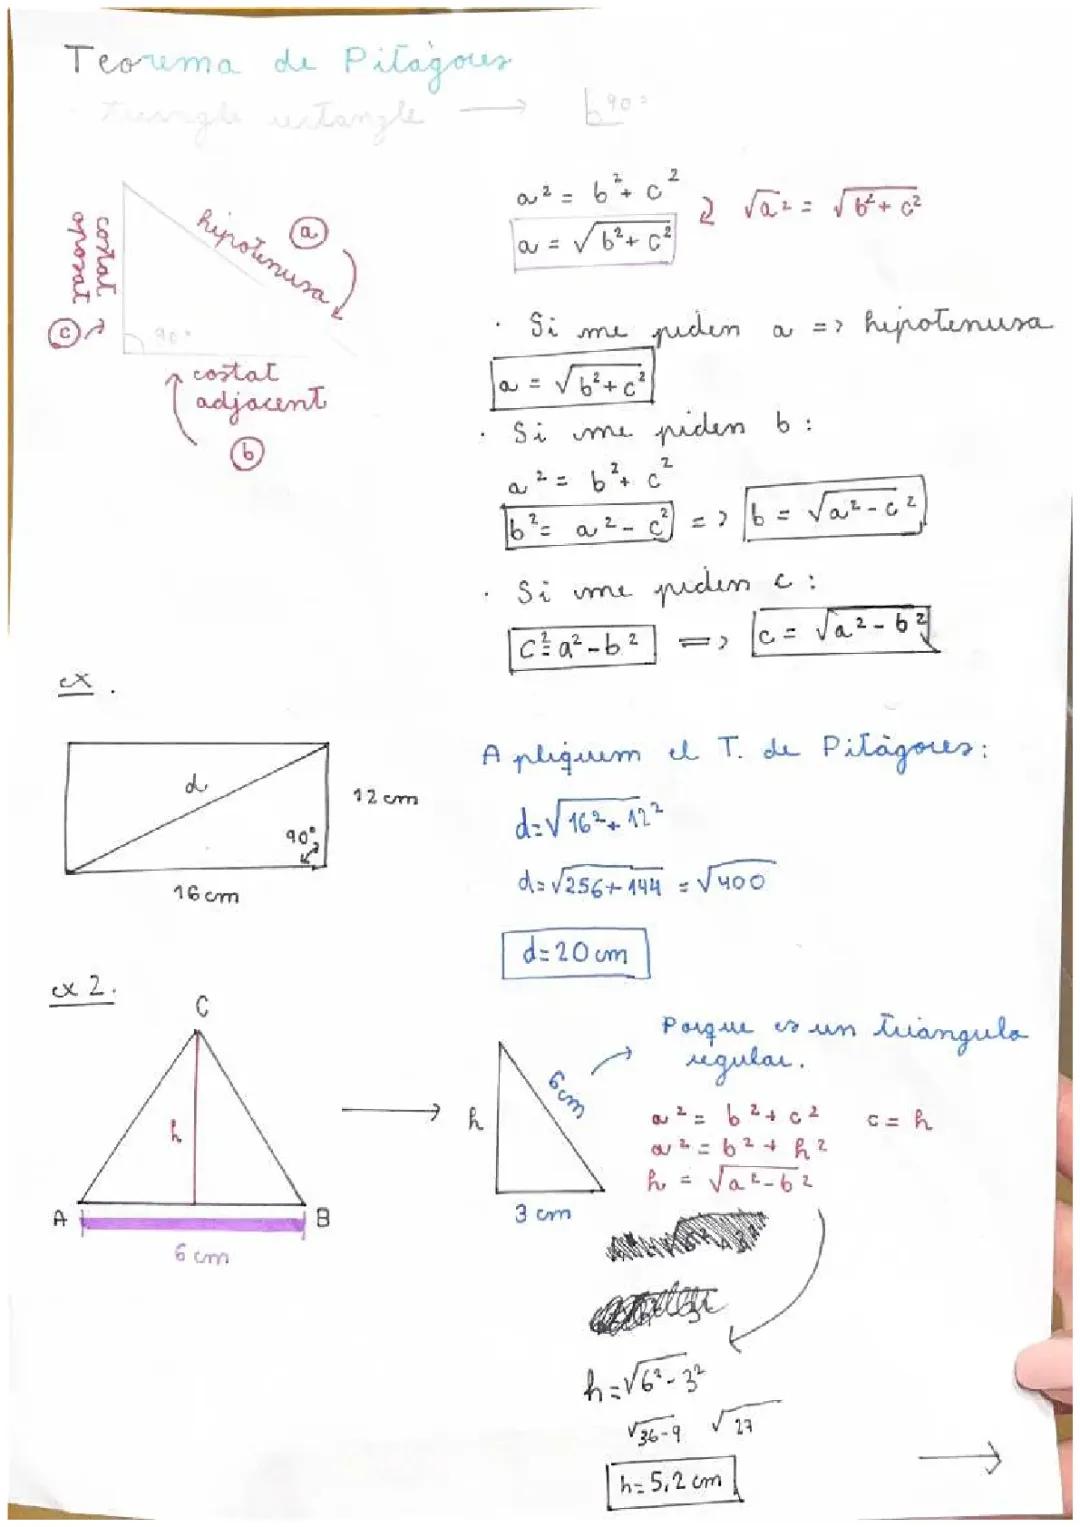 Teorema de Pitàgores
- triangle rectangle → 90°
hipotenusa
a
costat oposat
c
90°
costat adjacent
b
a² = b² + c²
a = √b² + c²
√a² = √b² + c²
· Si me piden a => hipotenusa
a = √b² + c²
· Si me piden b :
a² = b² + c²
b² = a² - c² => b = √a² - c²
· Si me piden c :
c² = a² - b² => c = √a² - b²
ex .
d
12 cm
90°
16 cm
Apliquem el T. de Pitàgores:
d=√16² + 12²
d=√256+144 = √400
d=20 cm
ex 2.
C
h
A
B
6 cm
→
h
6cm
3 cm
Porque es un triangulo
regular.
a² = b² + c²
c = h
a² = b² + h²
h = √a² - b²
h=√6² - 3²
√36-9 √27
h=5,2 cm
→